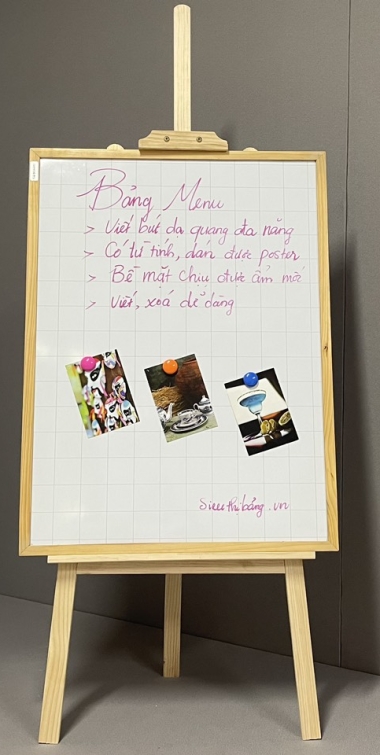 Bảng Menu
> Viết bút dạ quang đa năng
> Có từ tính, dán được poster
> Bề mặt chịu được ẩm mốc
> Viết, xoá dễ dàng
Sieuthịbảng.vn